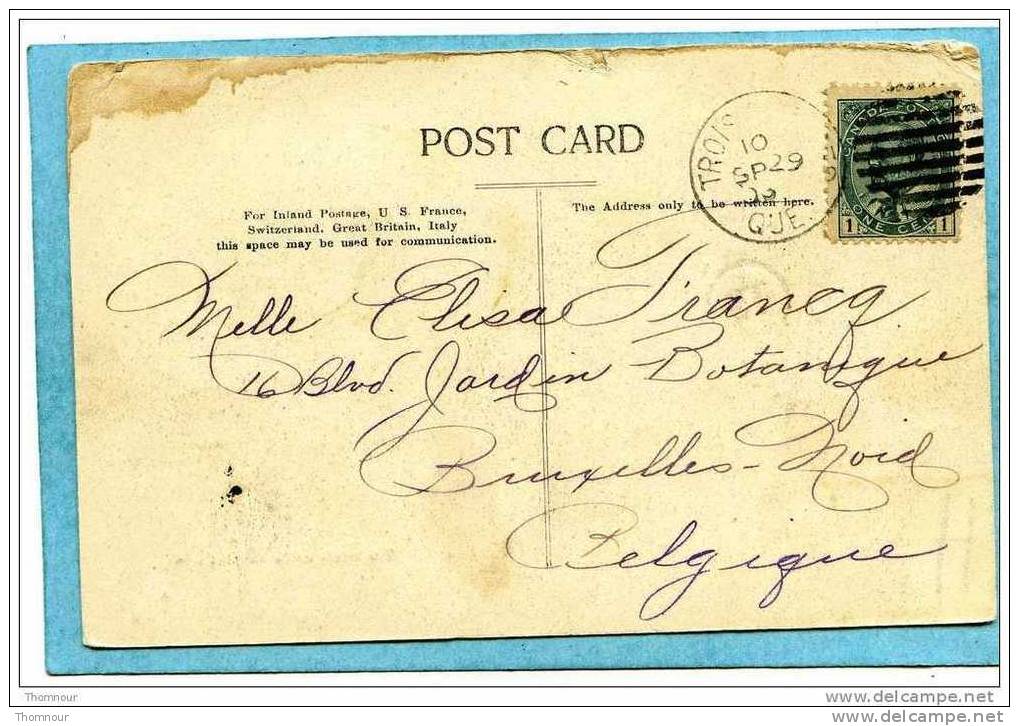 POST CARD
For Inland Postage, U S. France,
Switzerland, Great Britain, Italy
this space may be used for communication.
The Address only to be written here.
TROIS
10
SP 29
09
QUE.
CANADA POSTAGE
ONE CENT
1 1
Melle Elisa Francq
16 Blvd. Jardin Botanique
Bruxelles-Nord
Belgique
Thomnour www.delcampe.net
Thomnour www.delcampe.net